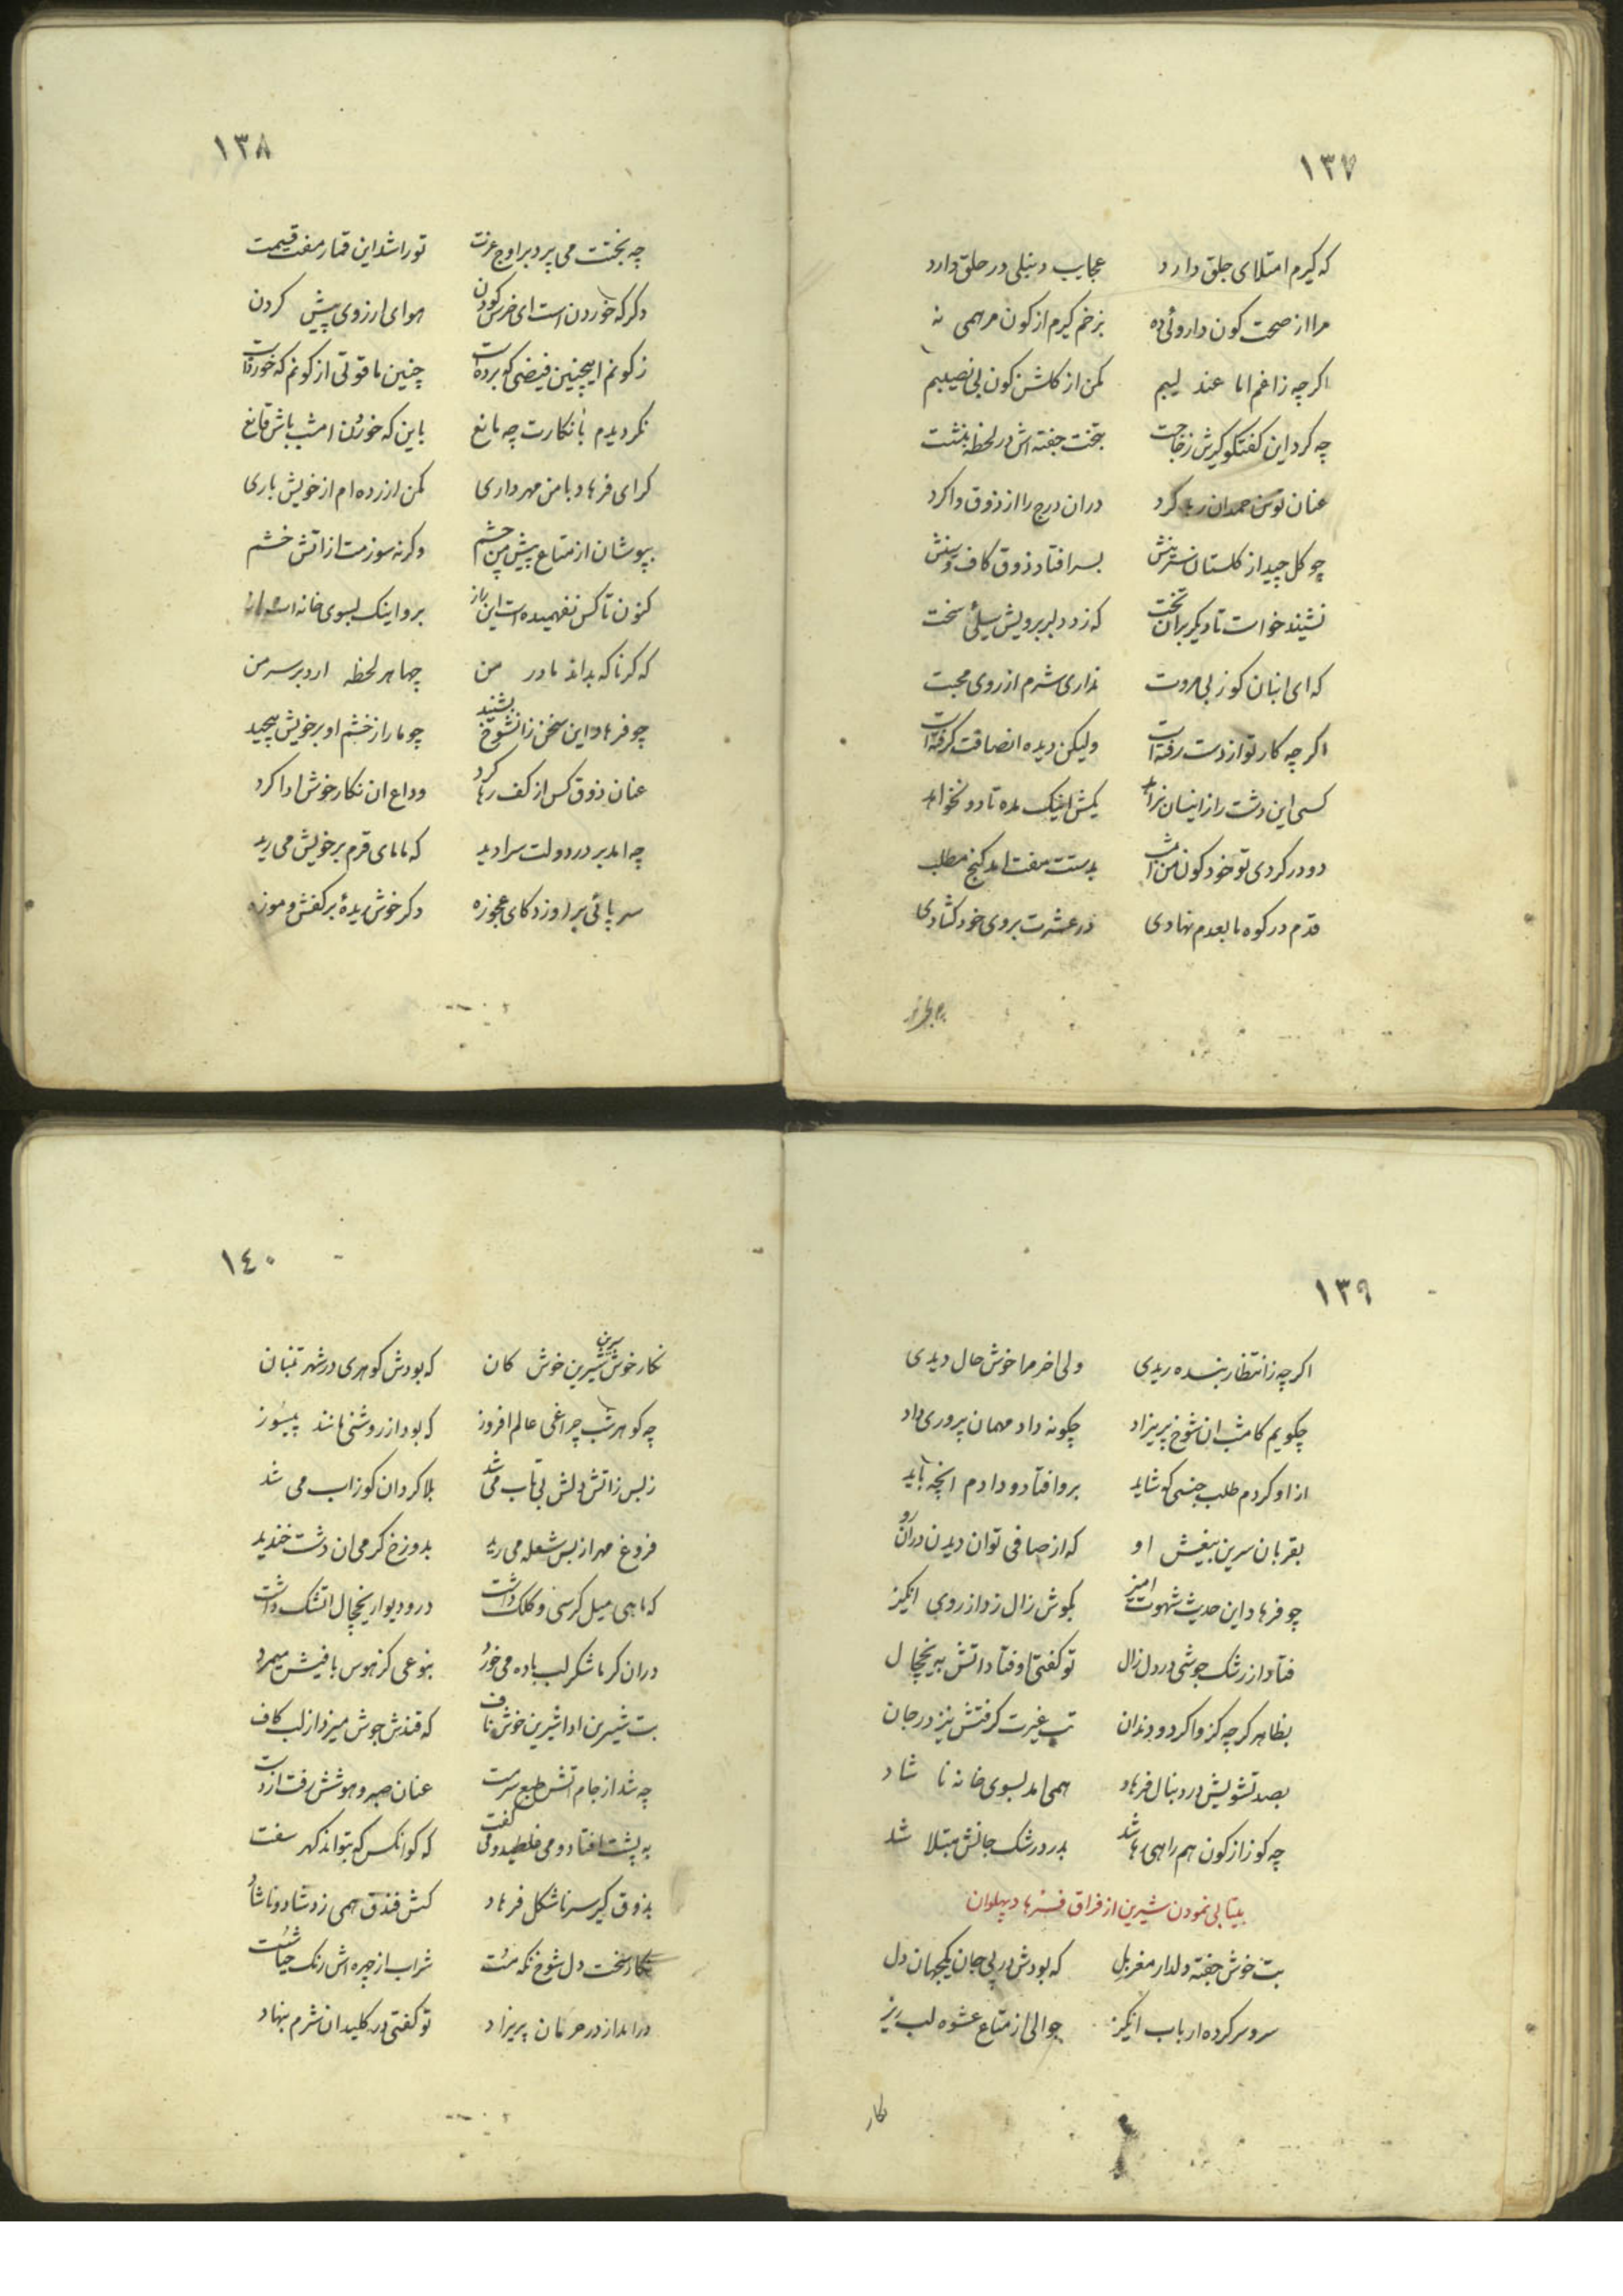 ١٣٧
که کیرم امتلای جلق دارد عجایب دنبلی در حلق دارد
مرا از صحت کون داروئی ده بزخم کیرم از کون مرهمی نه
اکرچه زاغم اما عند لیبم مکن از کلشن کون بی نصیبم
چه کرد این کفتکو کیرش زجا جست بتخت جفته اش در لحظه بنشت
عنان توسن حمدان رها کرد در ان درج را از ذوق وا کرد
چو کل چید از کلستان سترینش بسر افتاد ذوق کاف و سنش
نشیند خواست تا دیکر بران تخت که زد دلبر برویش سیلئ سخت
که ای انبان کوز بی مروت نداری شرم از روی محبت
اکرچه کار تو از دست رفته است ولیکن دیده انصافت کرفته است
کسی این دشت را ز اینسان نراند یکش اینک مده تا دو نخواند
دو در کردی تو خود کون من امشب بدستت مفت امد کنج مطلب
قدم در کوه ما بعدم نهادی در عشرت بروی خود کشادی
١٣٨
چه بختت می پرد بر اوج عزت تو را شد این قمار مفت قیمت
دکر که خوردن است ای خرس کودن هوای ارزوی پیش کردن
ز کونم اینچنین فیضی که برده است چنین ماقوتی از کونم که خورد است
نکردیدم بانکارت چه مانع باین که خوردن امشب باش قانع
کر ای فرهاد با من مهر داری مکن ازرده ام از خویش باری
بپوشان از متاع پیش من چشم وکرنه سوزمت از اتش خشم
کنون تا کس نفهمیده است این راز برو اینک بسوی خانه
که کر ناکه بداند مادر من چها هر لحظه ارد بر سر من
چو فرهاد این سخن زان شوخ بشنید چو مار از خشم او بر خویش پیچید
عنان ذوق کس از کف رها کرد وداع ان نکار خوش ادا کرد
چه امد بر در دولت سرا دید که مامای قرم بر خویش می رید
سر پائی بر او زد کای عجوزه دکر خوش ریدهٔ بر کفش و موزه
١٣٩
اکرچه ز انتظار بنده ریدی ولی اخر مرا خوش حال دیدی
چکویم کامشب ان شوخ پریزاد چکونه داد مهمان پروری داد
از او کردم طلب جنسی که شاید بر وا فتاد و دادم انچه باید
بقربان سرین بیغش او که از صافی توان دیدن در ان رو
چو فرهاد این حدیث شهوت امیز بکوش زال زد از روی انکیز
فتاد از رشک جوشی در دل زال تو کفتی اوفتاد اتش بریخچال
بظاهر کرچه کز وا کرد دندان تب غیرت کرفتش نیز در جان
بصد تشویش در دنبال فرهاد همی امد بسوی خانه نا شاد
چه کوز از کون هم راهی رها شد بدرد رشک جانش مبتلا شد
بیتابی نمودن شیرین از فراق فرهاد پهلوان
بت خوش جفته دلدار مغربل که بودش در پی جان یکجهان دل
سر و سرکرده ارباب انکیز جوالی از متاع عشوه لب ریز
نکار
١٤٠
نکار خوش سرین شیرین خوش کان که بودش کوهری در شهر تنبان
چه کوهر شب چراغی عالم افروز که بود از روشنی مانند پیسوز
ز بس ز اتش دلش بی تاب می شد بلا کردان کوز اب می شد
فروغ مهر از بس شعله می رید بدوزخ کرمی ان دشت خندید
که ماهی میل کرسی و کلک داشت در و دیوار یخچال اتشک داشت
در ان کرما شکر لب باده می خورد بنوعی کز هوس بافیش میمرد
بت شیرین ادا شیرین خوش ناف که قندش جوش میزد از لب کاف
چه شد از جام اتش طبع سرمست عنان صبر و هوشش رفت از دست
به پشت افتاد و می غلطید و می کفت که کو انکس که بتواند کهر سفت
بذوق کیر سرناشکل فرهاد کسش فندق همی زد شاد و ناشاد
نکار سخت دل شوخ نکه مست شراب از چهره اش رنک حیا شست
درامد از در حرمان پریزاد تو کفتی در کلیدان شرم بنهاد